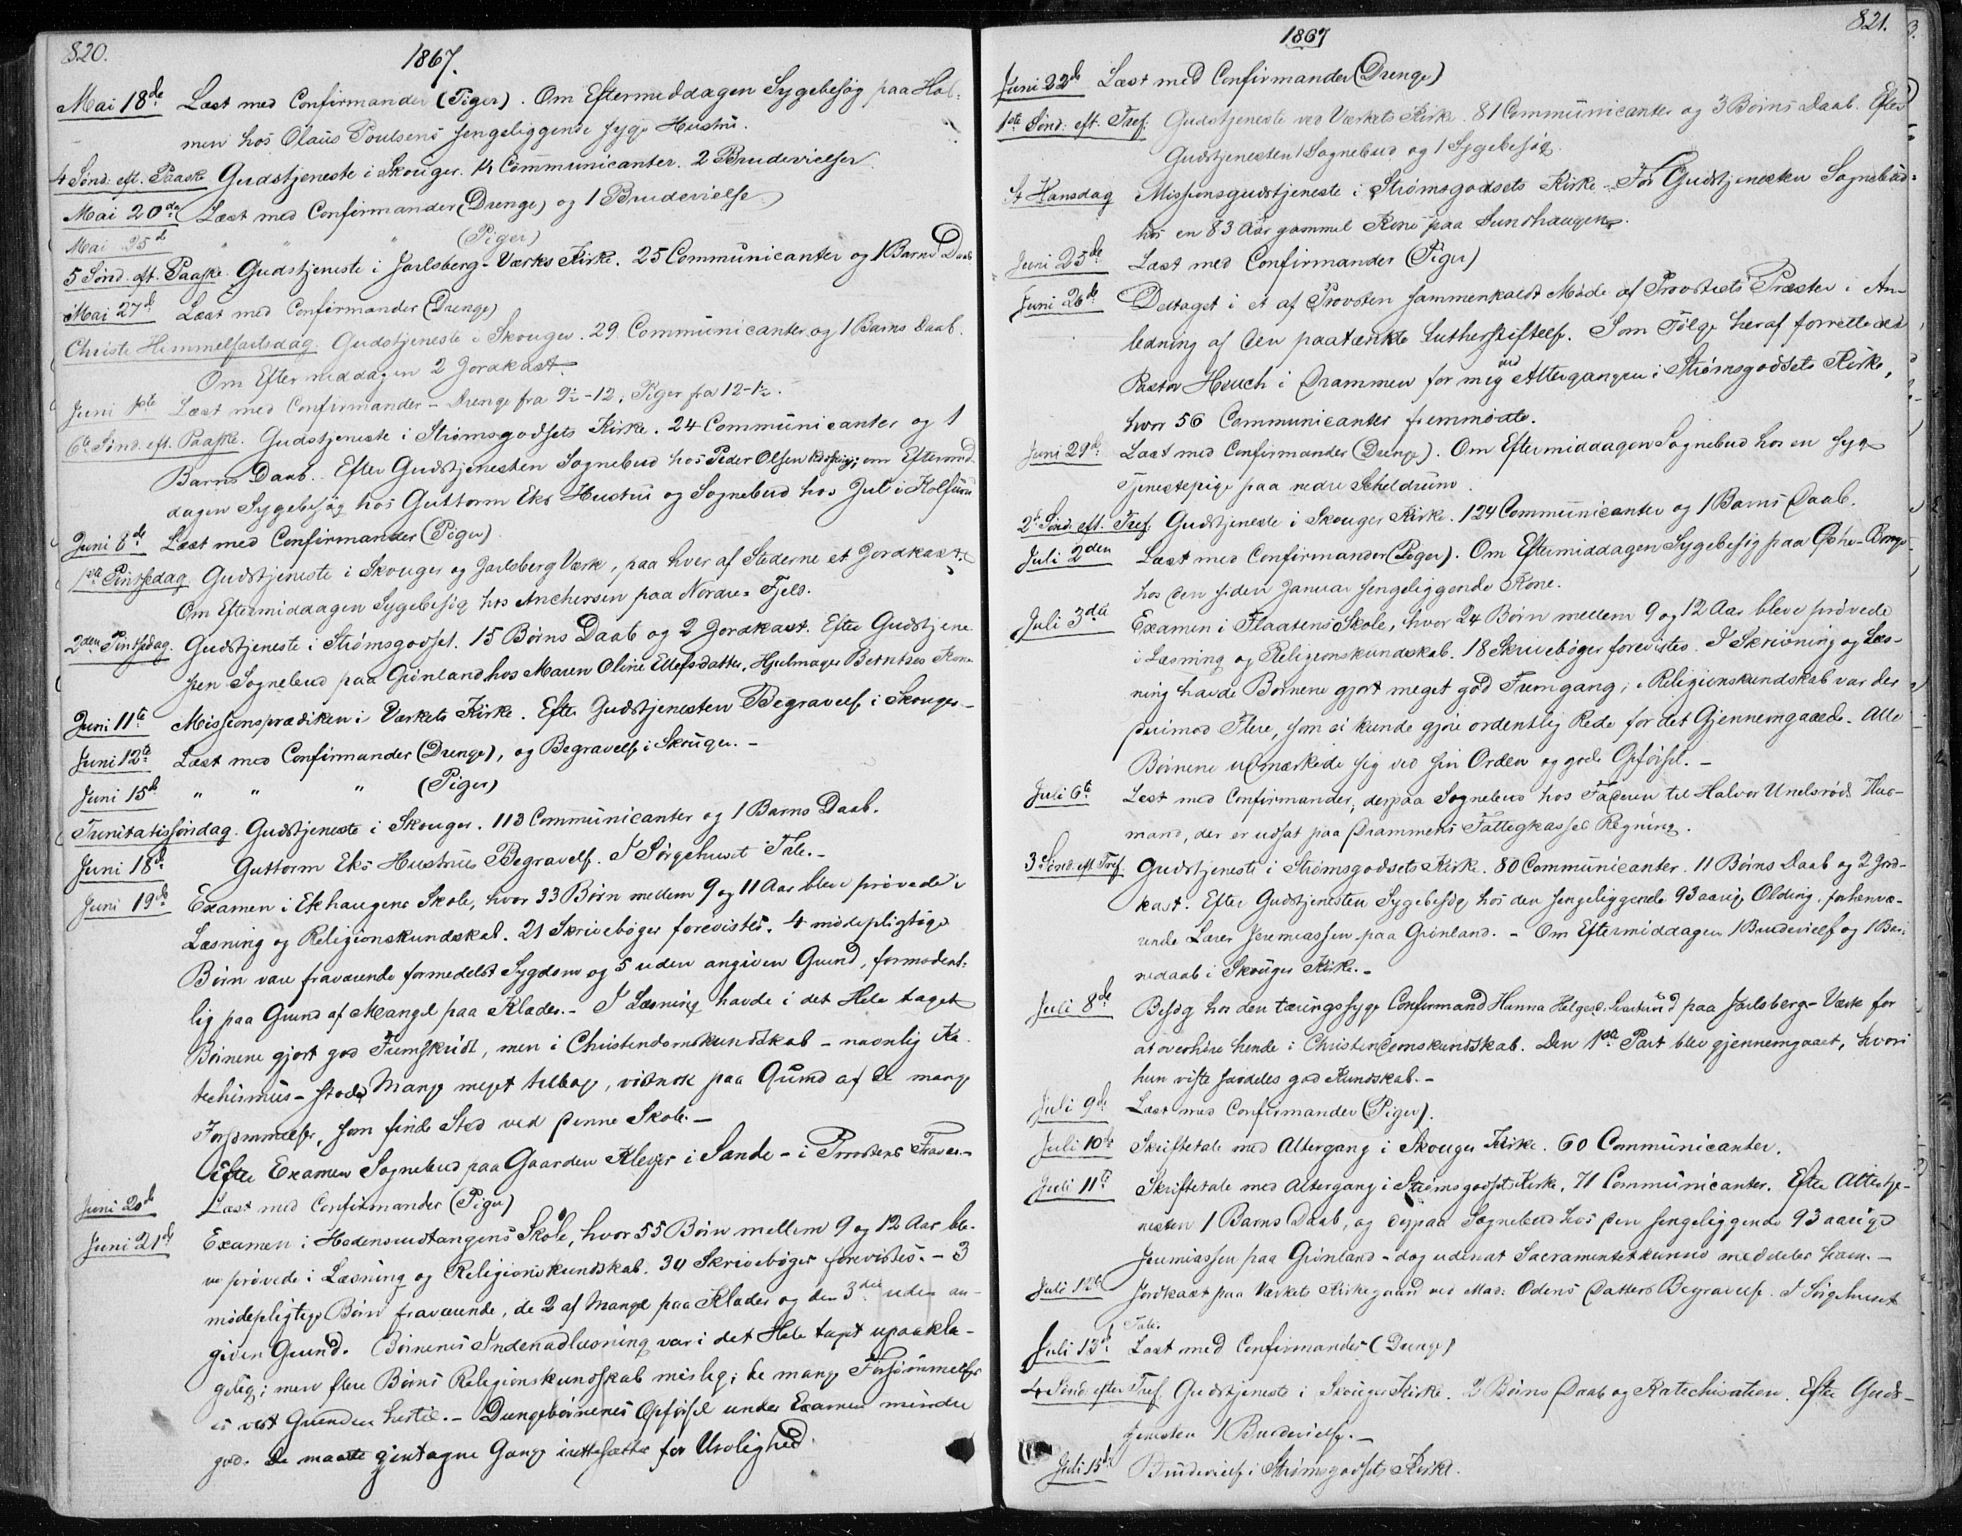 820.
1867.
Mai 18de Læst med Confirmander (Piger). Om Eftermiddagen Sygebesøg paa Hol-
men hos Olaus Poulsens sengeliggende syge Hustru.
4 Sønd. eft. Paaske Gudstjeneste i Skouger. 14 Communicanter. 2 Brudevielser
Mai 20de Læst med Confirmander (Drenge) og 1 Brudevielse
Mai 25d " " " (Piger)
5 Sønd. eft. Paaske. Gudstjeneste i Jarlsberg-Værks Kirke. 25 Communicanter og 1 Barns Daab
Mai 27d Læst med Confirmander (Drenge)
Christi Himmelfartsdag. Gudstjeneste i Skouger. 29 Communicanter og 1 Barns Daab.
Om Eftermiddagen 2 Jordkast.
Juni 1ste Læst med Confirmander – Drenge fra 9½-12, Piger fra 12-1½.
6te Sønd. eft. Paaske. Gudstjeneste i Strømsgodsets Kirke. 24 Communicanter og 1
Barns Daab. Efter Gudstjenesten Sognebud hos Peder Olsen ; om Eftermid-
dagen Sygebesøg hos Guttorm Eks Hustru og Sognebud hos Jul i Kolsrud
Juni 8de Læst med Confirmander (Piger)
1ste Pintsedag Gudstjeneste i Skouger og Jarlsberg Værk, paa hver af Stederne et Jordkast.
Om Eftermiddagen Sygebesøg hos Anchersen paa Nordre Fjeld.
2den Pintsedag. Gudstjeneste i Strømsgodset. 15 Børns Daab og 2 Jordkast. Efter Gudstjene-
sten Sognebud paa Grønland hos Maren Oline Ellefsdatter, Hjulmager Berntses Kone
Juni 11te Missionsprædiken i Værkets Kirke. Efter Gudstjenesten Begravelse i Skouger –
Juni 12te Læst med Confirmander (Drenge), og Begravelse i Skouger. –
Juni 15d " " " (Piger)
Trinitatissøndag. Gudstjeneste i Skouger. 113 Communicanter og 1 Barns Daab.
Juni 18d Guttorm Eks Hustrues Begravelse. I Sørgehuset Tale. –
Juni 19de Examen i Ekhaugens Skole, hvor 33 Børn mellem 9 og 11 Aar bleve prøvede i
Læsning og Religionskundskab. 21 Skrivebøger forevistes. 4 mødepligtige
Børn vare fraværende formedelst Sygdom og 5 uden angiven Grund, formodent-
lig paa Grund af Mangel paa Klæder. – I Læsning havde i det Hele taget
Børnene gjort god Fremskridt, men i Christendomskundskab – navnlig Ka-
techismus – stode Mange meget tilbage, vistnok paa Grund af de mange
Forsømmelser, som finde Sted ved denne Skole. –
Efter Examen Sognebud paa Gaarden Klever i Sande – i Provstens Fravær. –
Juni 20de Læst med Confirmander (Piger)
Juni 21de Examen i Hedensrudtangens Skole, hvor 55 Børn mellem 9 og 12 Aar ble-
ve prøvede i Læsning og Religionskundskab. 34 Skrivebøger forevistes. – 3
mødepligtige Børn fraværende, de 2 af Mangel paa Klæder og den 3die uden an-
given Grund. Børnenes Indenadlæsning var i det Hele taget upaakla-
gelig; men flere Børns Religionskundskab mislig; de mange Forsømmelser
er vist Grunden hertil. – Drengebørnenes Opførsel under Examen mindre
god. De maatte gjentagne Gange irettesættes for Urolighed.
1867
821.
Juni 22de Læst med Confirmander (Drenge)
1ste Sønd. eft. Tref. Gudstjeneste ved Værkets Kirke. 81 Communicanter og 3 Børns Daab. Efter
Gudstjenesten 1 Sognebud og 1 Sygebesøg.
St Hansdag Missionsgudstjeneste i Strømsgodsets Kirke. Før Gudstjenesten Sognebud
hos en 83 Aar gammel Kone paa Sundhaugen.
Juni 25de Læst med Confirmander (Piger)
Juni 26de Deltaget i et af Provsten sammenkaldt Møde af Provstiets Præster i An-
ledning af den paatænkte Lutherstiftelse. Som Følge heraf forrettede
Pastor Hauch i Drammen for mig ved Altergangen i Strømsgodsets Kirke,
hvor 56 Communicanter fremmødte.
Juni 29de Læst med Confirmander (Drenge). Om Eftermiddagen Sognebud hos en syg
Tjenestepige paa nedre Scheldrum.
2de Sønd. eft. Tref. Gudstjeneste i Skouger Kirke. 124 Communicanter og 1 Barns Daab.
Juli 2den Læst med Confirmander (Piger). Om Eftermiddagen Sygebesøg paa
hos den siden Januar sengeliggende Kone.
Juli 3die Examen i Flaatens Skole, hvor 24 Børn mellem 9 og 12 Aar bleve prøvede
i Læsning og Religionskundskab. 18 Skrivebøger forevistes. I Skrivning og Læs-
ning havde Børnene gjort meget god Fremgang, i Religionskundskab var der
derimod Flere, som ei kunde gjøre ordentlig Rede for det Gjennemgaaede. Alle
Børnene udmærkede sig ved sin Orden og gode Opførsel. –
Juli 6te Læst med Confirmander, derpaa Sognebud hos Faderen til Halvor Unelsrøds Hus-
mand, der er udsat paa Drammens Fattigkasses Regning.
3 Sønd. eft Tref. Gudstjeneste i Strømsgodsets Kirke. 80 Communicanter. 11 Børns Daab og 2 Jord-
kast. Efter Gudstjenesten Sygebesøg hos den sengeliggende 93 aarige Olding, forhenvæ-
rende Lærer Jeremiassen paa Grønland. – Om Eftermiddagen 1 Brudevielse og 1 Bar-
nedaab i Skouger Kirke. –
Juli 8de Besøg hos den tæringssyge Confirmand Hanna Helgesd. paa Jarlsberg-Værk for
at overhøre hende i Christendomskundskab. Den 1ste Part blev gjennemgaaet, hvori
hun viste særdeles god Kundskab. –
Juli 9de Læst med Confirmander (Piger).
Juli 10de Skriftetale med Altergang i Skouger Kirke. 60 Communicanter.
Juli 11te Skriftetale med Altergang i Strømsgodsets Kirke, 71 Communicanter. Efter Altertje-
nesten 1 Barns Daab, og derpaa Sognebud hos den sengeliggende 93 aarige
Jeremiassen paa Grønland – dog uden at Sacramentet kunde meddeles ham. –
Juli 12te Jordkast paa Værkets Kirkegaard ved Mad: Odens Datters Begravelse. I Sørgehuset
Tale.
Juli 13de Læst med Confirmander (Drenge)
4 Sønd. efter Tref. Gudstjeneste i Skouger Kirke. 3 Børns Daab og Katechisation. Efter Guds-
tjenesten 1 Brudevielse. –
Juli 15de Brudevielse i Strømsgodsets Kirke.